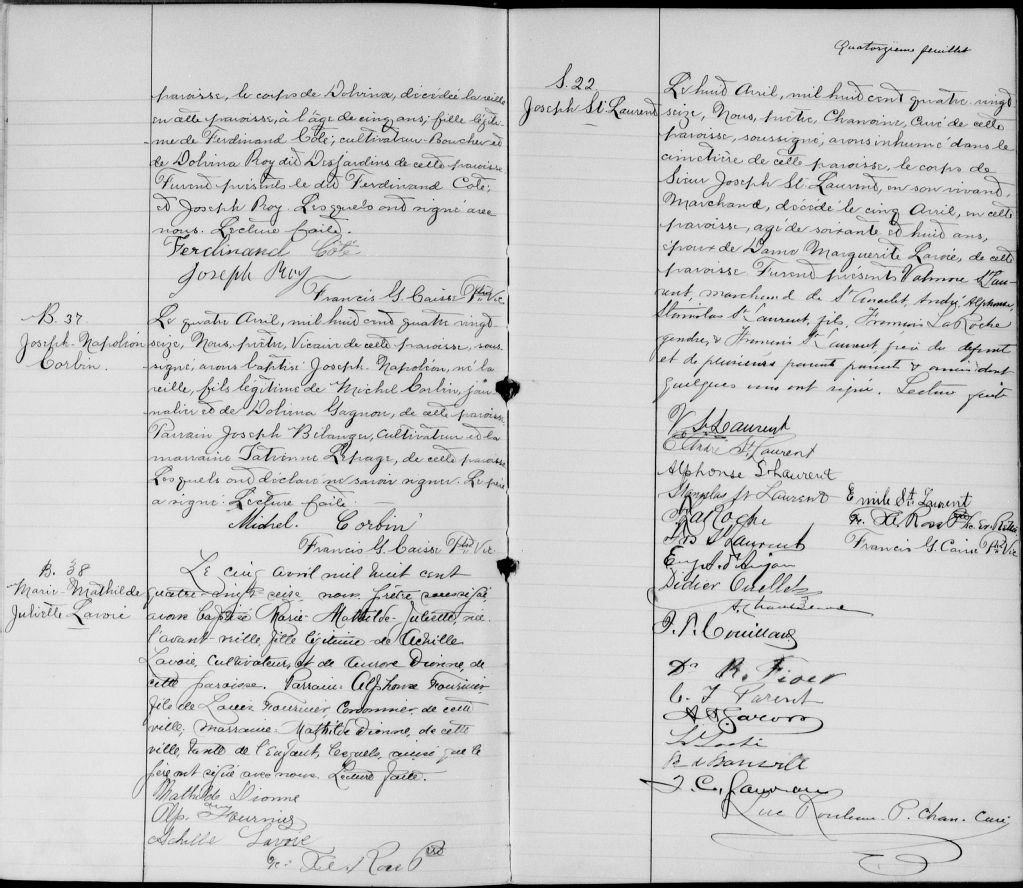 paroisse, le corps de Dolvina, décédée la veille
en cette paroisse, à l'âge de cinq ans; fille légiti
me de Ferdinand Coté, cultivateur-Boucher et
de Dolvina Roy dit Desjardins de cette paroisse.
Furent présents le dit Ferdinand Coté,
et Joseph Roy. Lesquels ont signé avec
nous. Lecture faite.
Ferdinand Coté
Joseph Roy
Francis G. Caisse Ptre Vic
B. 37
Joseph-Napoléon
Corbin.
Le quatre Avril, mil huit cent quatre vingt
seize, Nous, prêtre, Vicaire de cette paroisse, sous-
signé, avons baptisé Joseph-Napoléon, né la
veille, fils légitime de Michel Corbin, jour
nalier et de Dolvina Gagnon, de cette paroisse.
Parrain Joseph Bélanger, cultivateur et la
marraine Lepage, de cette paroisse
Lesquels ont déclaré ne savoir signer. Le père
a signé. Lecture faite
Michel Corbin
Francis G. Caisse Ptre Vic
B. 38
Marie-Mathilde
Juliette Lavoie
Le cinq avril mil huit cent
quatre-vingt seize nous prêtre soussigné
avons baptisé Marie-Mathilde-Juliette, née
l'avant-veille, fille légitime de Achille
Lavoie, cultivateur, et de Aurore Dionne, de
cette paroisse. Parrain: Alphonse Fournier
fils de Louis Fournier Cordonnier de cette
ville, marraine: Mathilde Dionne, de cette
ville, tante de l'Enfant, lesquels, ainsi que le
père ont signé avec nous. Lecture faite.
Mathilde Dionne
Alp. Fournier
Achille Lavoie
Quatorzième feuillet
S. 22
Joseph St Laurent
Le huit Avril, mil huit cent quatre vingt
seize, Nous, prêtre, Chanoine, Curé de cette
paroisse, soussigné, avons inhumé dans le
cimetière de cette paroisse, le corps de
Sieur Joseph St Laurent, en son vivant,
Marchand, décédé le cinq Avril, en cette
paroisse, agé de soixante et huit ans,
époux de Dame Marguerite Lavoie, de cette
paroisse Furent présents Valmore St Lau-
rent, marchand de St Anaclet, André Alphonse,
Stanislas St Laurent, fils, Francois LaRoche
gendre, & Francois St Laurent, frère du défunt
et de plusieurs parents & amis dont
quelques uns ont signé. Lecture faite
V St Laurent
St Laurent
Alphonse St Laurent
Stanislas St Laurent Emile St Laurent
LaRoche
St Laurent Francis G. Caisse Ptre Vic
Eug. d'Anjou
Didier Ouellet
J. A. Couillard
Dr R. Fiset
C. F. Parent
J. C. Gauvreau
Luc Rouleau P. Chan. Curé